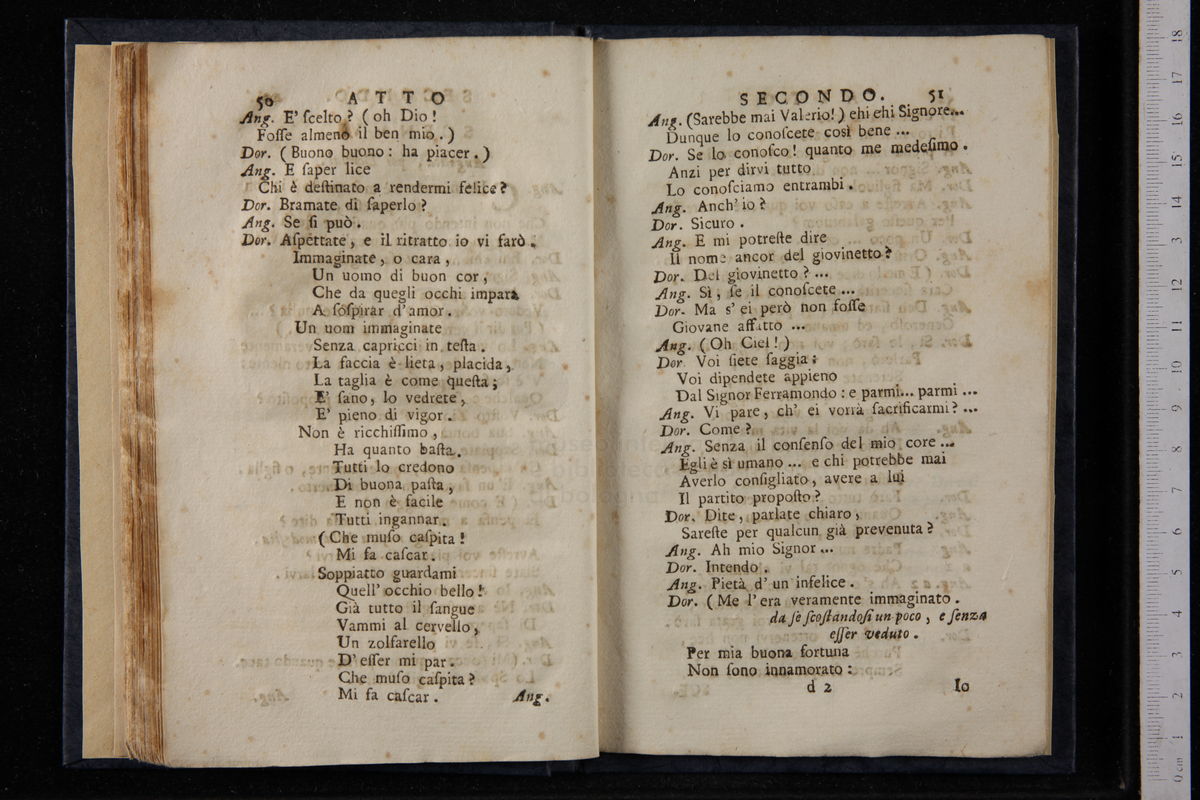 50 ATTO
Ang. E' ſcelto? (oh Dio!
Foſſe almeno il ben mio.)
Dor. (Buono buono: ha piacer.)
Ang. E ſaper lice
Chi è deſtinato a rendermi felice?
Dor. Bramate di ſaperlo?
Ang. Se ſi può.
Dor. Aſpettate, e il ritratto io vi farò.
Immaginate, o cara,
Un uomo di buon cor,
Che da quegli occhi impara
A ſoſpirar d'amor.
Un uom immaginate
Senza capricci in teſta.
La faccia è lieta, placida,
La taglia è come queſta;
E' ſano, lo vedrete,
E' pieno di vigor.
Non è ricchiſſimo,
Ha quanto baſta.
Tutti lo credono
Di buona paſta,
E non è facile
Tutti ingannar.
(Che muſo caſpita!
Mi fa caſcar.
Soppiatto guardami
Quell' occhio bello!
Già tutto il ſangue
Vammi al cervello,
Un zolfarello
D' eſſer mi par.
Che muſo caſpita?
Mi fa caſcar.
Ang.
SECONDO. 51
Ang. (Sarebbe mai Valerio!) ehi ehi Signore...
Dunque lo conoſcete così bene ...
Dor. Se lo conoſco! quanto me medeſimo.
Anzi per dirvi tutto
Lo conoſciamo entrambi.
Ang. Anch' io?
Dor. Sicuro.
Ang. E mi potreſte dire
Il nome ancor del giovinetto?
Dor. Del giovinetto? ...
Ang. Sì, ſe il conoſcete ...
Dor. Ma s' ei però non foſſe
Giovane affatto ...
Ang. (Oh Ciel!)
Dor Voi ſiete ſaggia;
Voi dipendete appieno
Dal Signor Ferramondo: e parmi... parmi ...
Ang. Vi pare, ch' ei vorrà ſacrificarmi? ...
Dor. Come?
Ang. Senza il conſenſo del mio core ...
Egli è sì umano ... e chi potrebbe mai
Averlo conſigliato, avere a lui
Il partito propoſto?
Dor. Dite, parlate chiaro,
Sareſte per qualcun già prevenuta?
Ang. Ah mio Signor ...
Dor. Intendo.
Ang. Pietà d' un infelice.
Dor. (Me l' era veramente immaginato.
da ſe ſcoſtandoſi un poco, e ſenza
eſſer veduto.
Per mia buona fortuna
Non ſono innamorato:
d 2 Io
0 cm 1 2 3 4 5 6 7 8 9 10 11 12 13 14 15 16 17 18